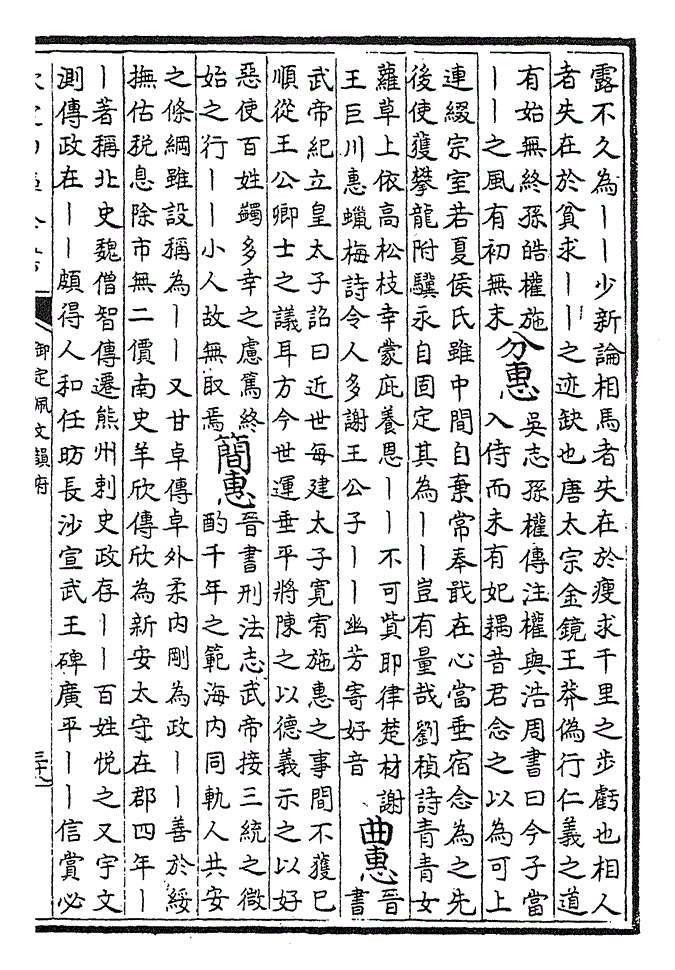 露不久為｜｜少新論相馬者失在於瘦求千里之步虧也相人
者失在於貧求｜｜之迹缺也唐太宗金鏡王莽偽行仁義之道
有始無終孫皓權施
｜｜之風有初無末
分惠
吳志孫權傳注權與浩周書曰今子當
入侍而未有妃耦昔君念之以為可上
連綴宗室若夏侯氏雖中間自棄常奉戢在心當垂宿念為之先
後使獲攀龍附驥永自固定其為｜｜豈有量哉劉楨詩青青女
蘿草上依高松枝幸蒙庇養恩｜｜不可貲耶律楚材謝
王巨川惠蠟梅詩令人多謝王公子｜｜幽芳寄好音
曲惠
晉
書
武帝紀立皇太子詔曰近世每建太子寬宥施惠之事間不獲已
順從王公卿士之議耳方今世運垂平將陳之以德義示之以好
惡使百姓蠲多幸之慮篤終
始之行｜｜小人故無取焉
簡惠
晉書刑法志武帝接三統之微
酌千年之範海內同軌人共安
之條綱雖設稱為｜｜又甘卓傳卓外柔內剛為政｜｜善於綏
撫估稅息除市無二價南史羊欣傳欣為新安太守在郡四年｜
｜著稱北史魏僧智傳遷熊州刺史政存｜｜百姓悅之又宇文
測傳政在｜｜頗得人和任昉長沙宣武王碑廣平｜｜信賞必
御定佩文韻府